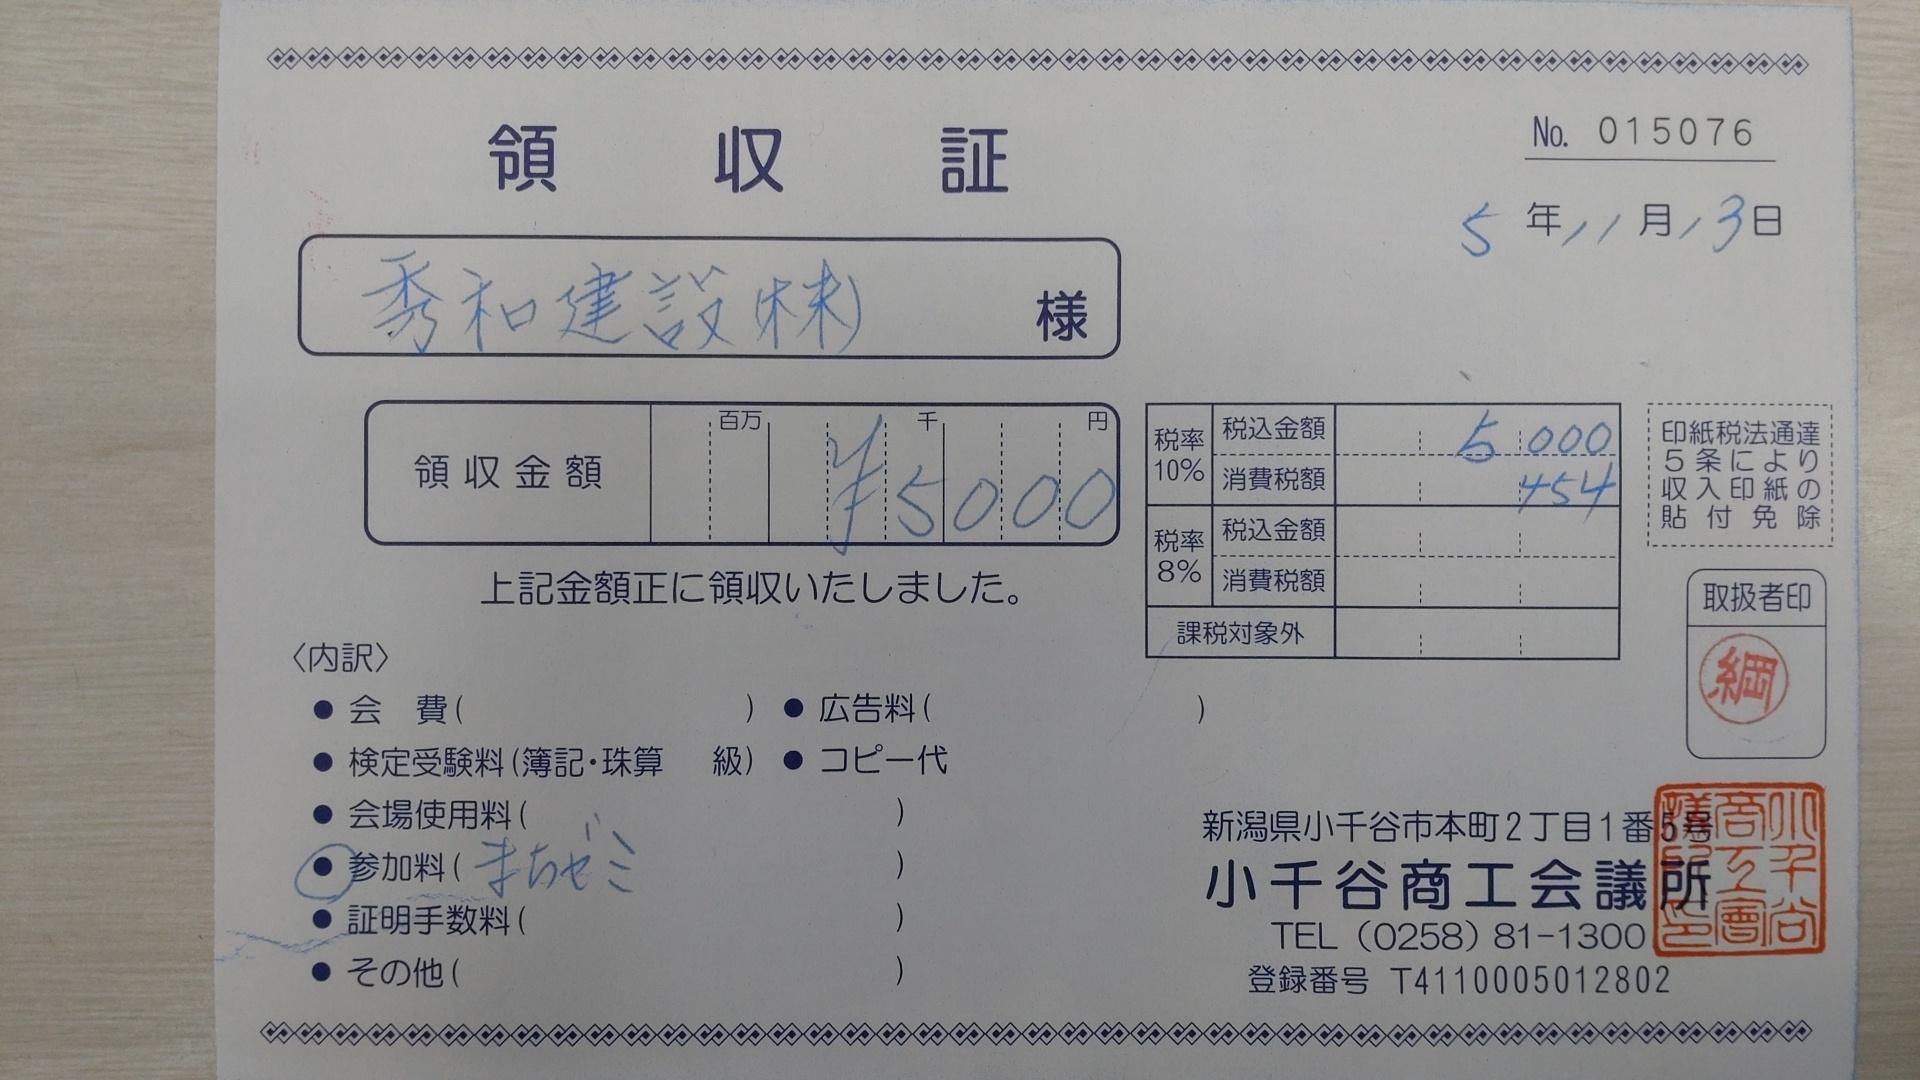 領収証
No. 015076
5年11月13日
秀和建設(株) 様
領収金額 百万 千 円 ¥5000
上記金額正に領収いたしました。
税率10% 税込金額 5000
消費税額 454
税率8% 税込金額
消費税額
課税対象外
印紙税法通達
5条により
収入印紙の
貼付免除
取扱者印
綱
〈内訳〉
●会 費( ) ●広告料( )
●検定受験料(簿記・珠算 級) ●コピー代
●会場使用料( )
●参加料(まちゼミ )
●証明手数料( )
●その他( )
新潟県小千谷市本町2丁目1番5号
小千谷商工会議所
TEL(0258)81-1300
登録番号 T4110005012802
小千谷商工會議所之印